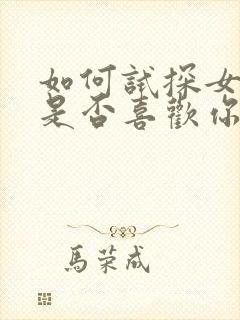 如何試探女
是否喜歡你
馬荣成